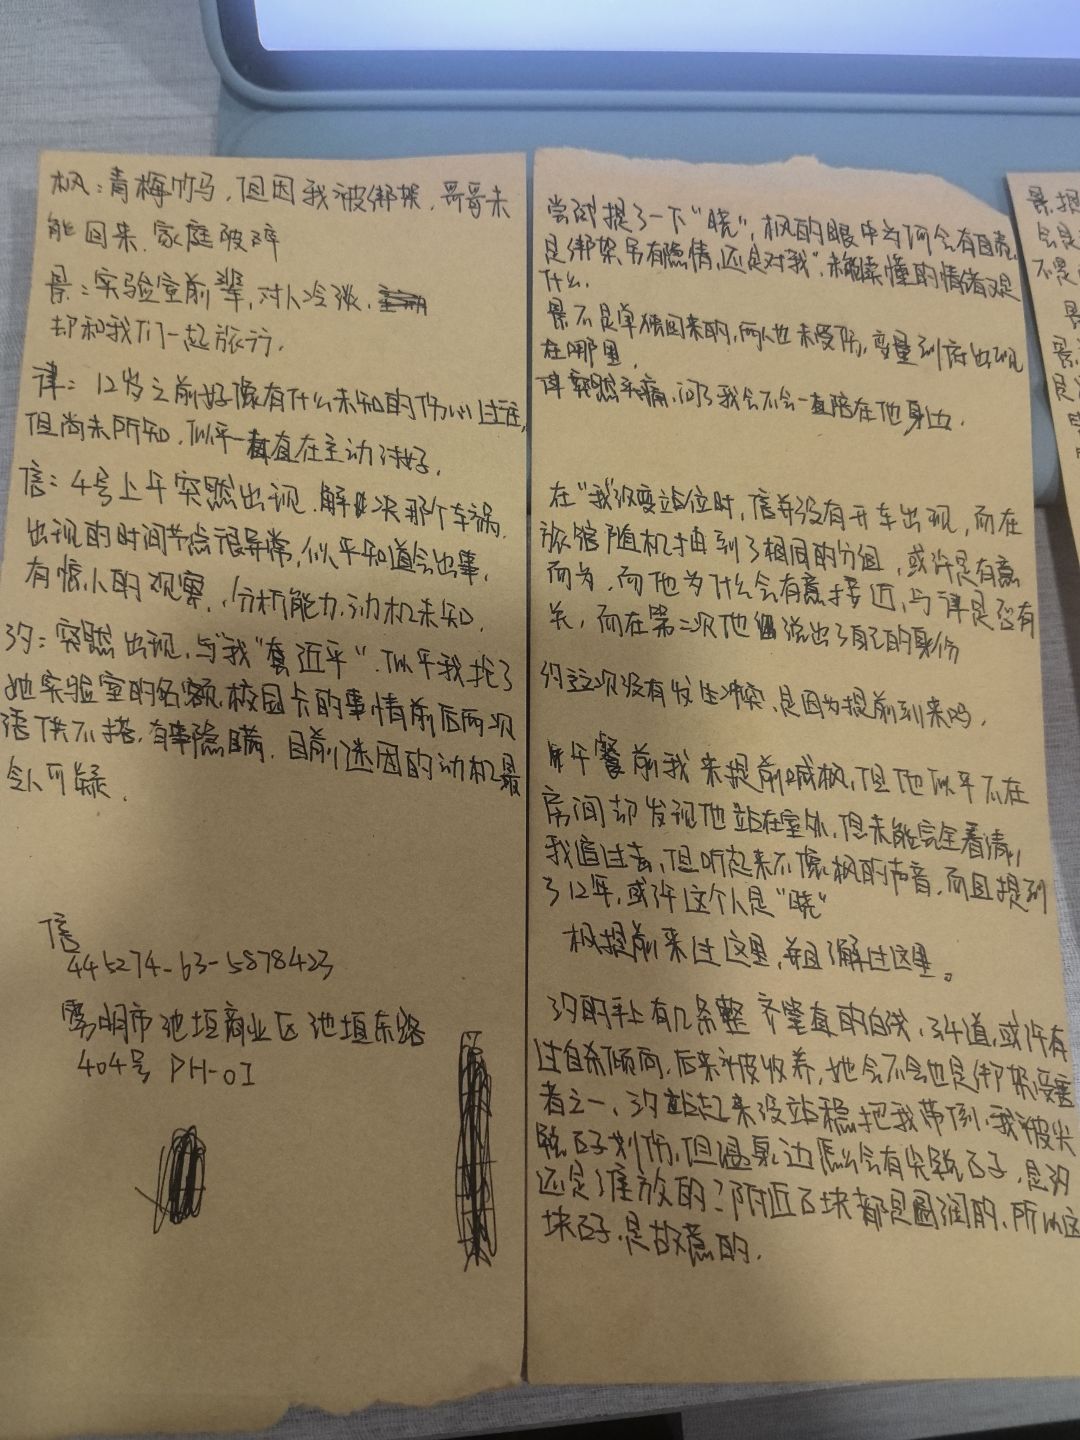 枫：青梅竹马，但因我被绑架，哥哥未
能回来，家庭破碎
景：实验室前辈，对人冷淡，
却和我们一起旅行。
律：12岁之前好像有什么未知的伤心过往，
但尚未所知，似乎一直在主动讨好。
信：4号上午突然出现，解决那个车祸，
出现的时间节点很异常，似乎知道会出事，
有惊人的观察，分析能力，动机未知，
汐：突然出现，与"我"套近乎"，似乎我抢了
她实验室的名额，校园卡的事情前后两次
语供不搭，有事隐瞒，目前迷因的动机最
令人可疑，
信
445274-63-5878423
雾明市池垣商业区池垣东路
404号 PH-01
尝试提了一下"晓"，枫的眼中为何会有自责，
是绑架另有隐情，还是对"我"，未能读懂的情绪又是
什么，
景不是单独回来的，两人也未受伤，变量到底出现
在哪里，
律突然头痛，问了我会不会一直陪在他身边，
在"我"改变站位时，信并没有开车出现，而在
旅馆随机抽到了相同的分组，或许是有意
而为，而他为什么会有意接近，与律是否有
关，而在第二次他说出了自己的身份
这次没有发生冲突，是因为提前到来吗，
午餐前我来提前喊枫，但他似乎不在
房间却发现他站在室外，但未能完全看清，
我追过去，但听起来不像枫的声音，而且提到
了12年，或许这个人是"晓"
枫提前来过这里，并且了解过这里。
汐的手上有几条整齐笔直的白线，3、4道，或许有
过自杀倾向，后来被收养，她会不会也是绑架受害
者之一，汐站起来没站稳把我带倒，我被尖
锐石子划伤，但温泉边怎么会有尖锐石子，是汐
还是谁放的？附近石块都是圆润的，所以这
块石子，是故意的，
景提
会是
不是
景